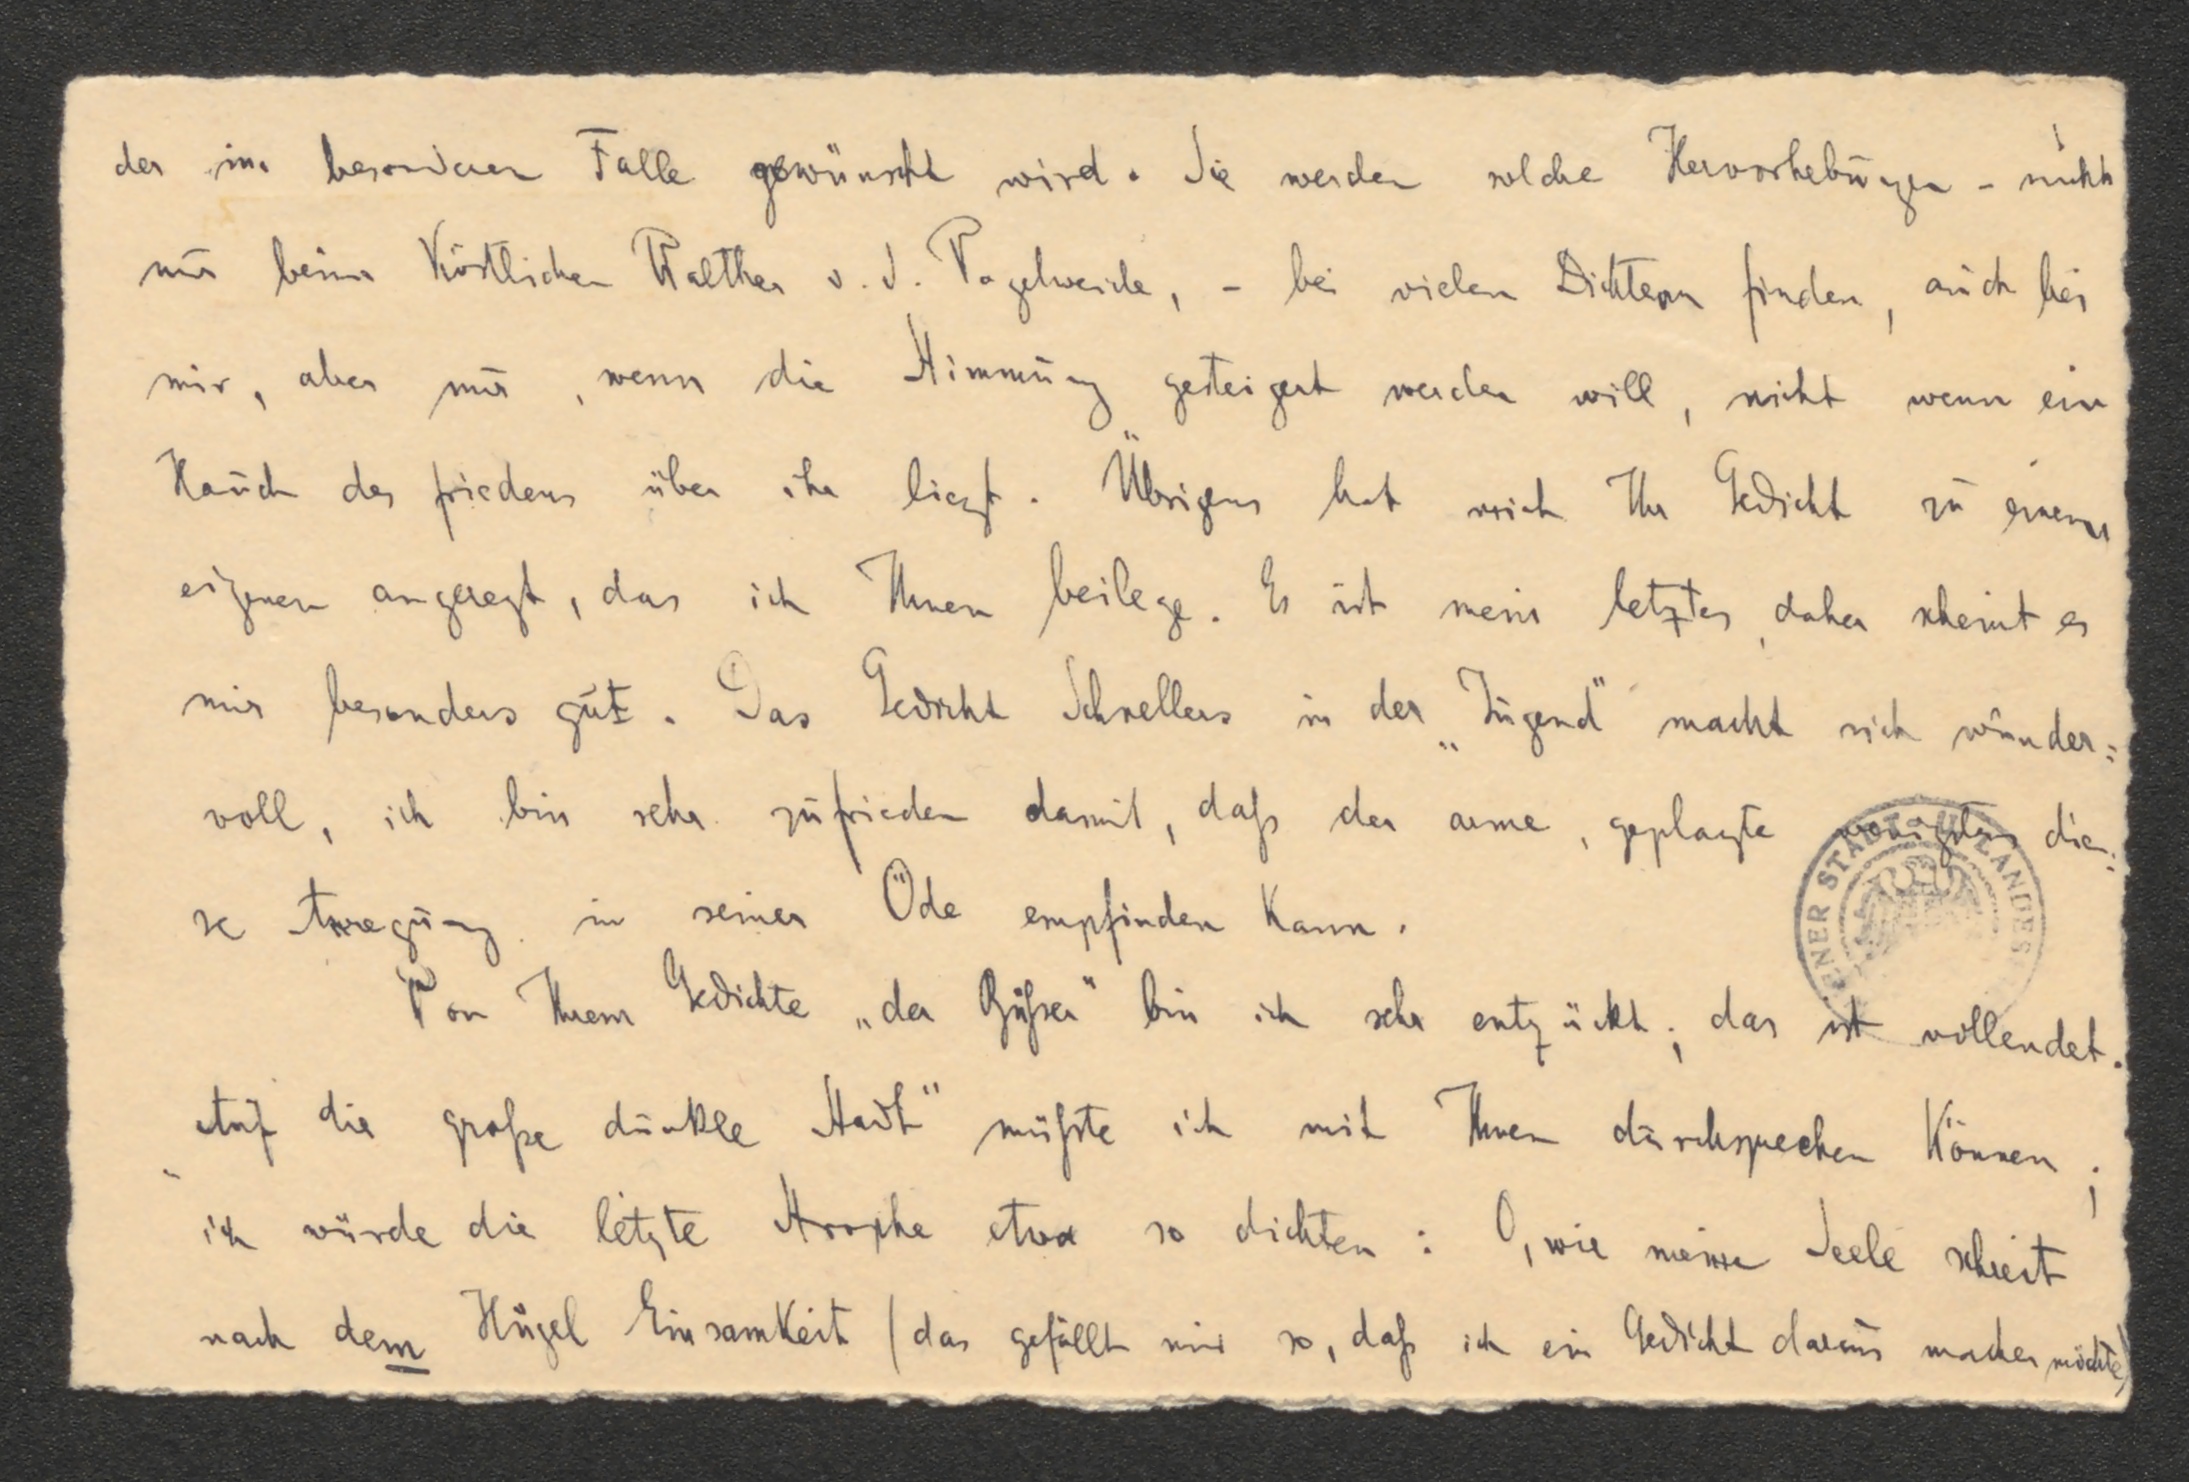 der im besonderen Falle gewünscht wird. Sie werden solche Hervorhebungen - nicht
nur beim köstlichen Walther v. d. Vogelweide, - bei vielen Dichtern finden, auch bei
mir, aber nur, wenn die Stimmung gesteigert werden will, nicht wenn ein
Hauch des Friedens über ihr liegt. Übrigens hat mich Ihr Gedicht zu einem
eigenen angeregt, das ich Ihnen beilege. Es ist mein letztes, daher scheint es
mir besonders gut. Das Gedicht Schnellers in der „Jugend" macht sich wunder=
voll, ich bin sehr zufrieden damit, daß der arme, geplagte wenigstens die=
se Anregung in seiner Öde empfinden kann.
Von Ihrem Gedichte „der Büßer" bin ich sehr entzückt; das ist vollendet.
„Auf die große dunkle Stadt" müßte ich mit Ihnen durchsprechen können;
ich würde die letzte Strophe etwa so dichten: O, wie meine Seele schreit
nach dem Hügel Einsamkeit (das gefällt mir so, daß ich ein Gedicht daraus machen möchte)
ENER STADT- U. LANDES